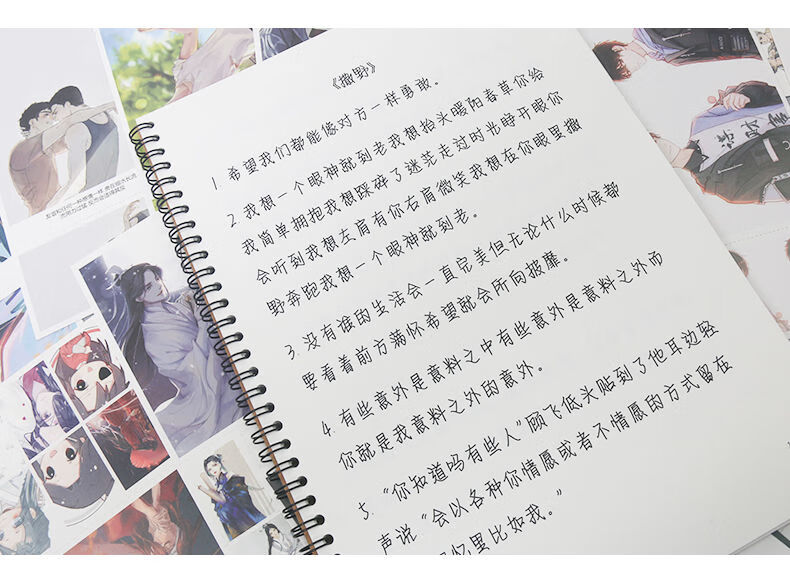 《撒野》
1. 希望我们都能像对方一样勇敢。
2. 我想一个眼神就到老我想抬头暖阳春草你给
我简单拥抱我想踩碎了迷茫走过时光睁开眼你
会听到我想左肩有你右肩微笑我想在你眼里撒
野奔跑我想一个眼神就到老。
3. 没有谁的生活会一直完美但无论什么时候都
要看着前方满怀希望就会所向披靡。
4. 有些意外是意料之中有些意外是意料之外而
你就是我意料之外的意外。
5. “你知道吗有些人”顾飞低头贴到了他耳边轻
声说“会以各种你情愿或者不情愿的方式留在
忆里比如我。”